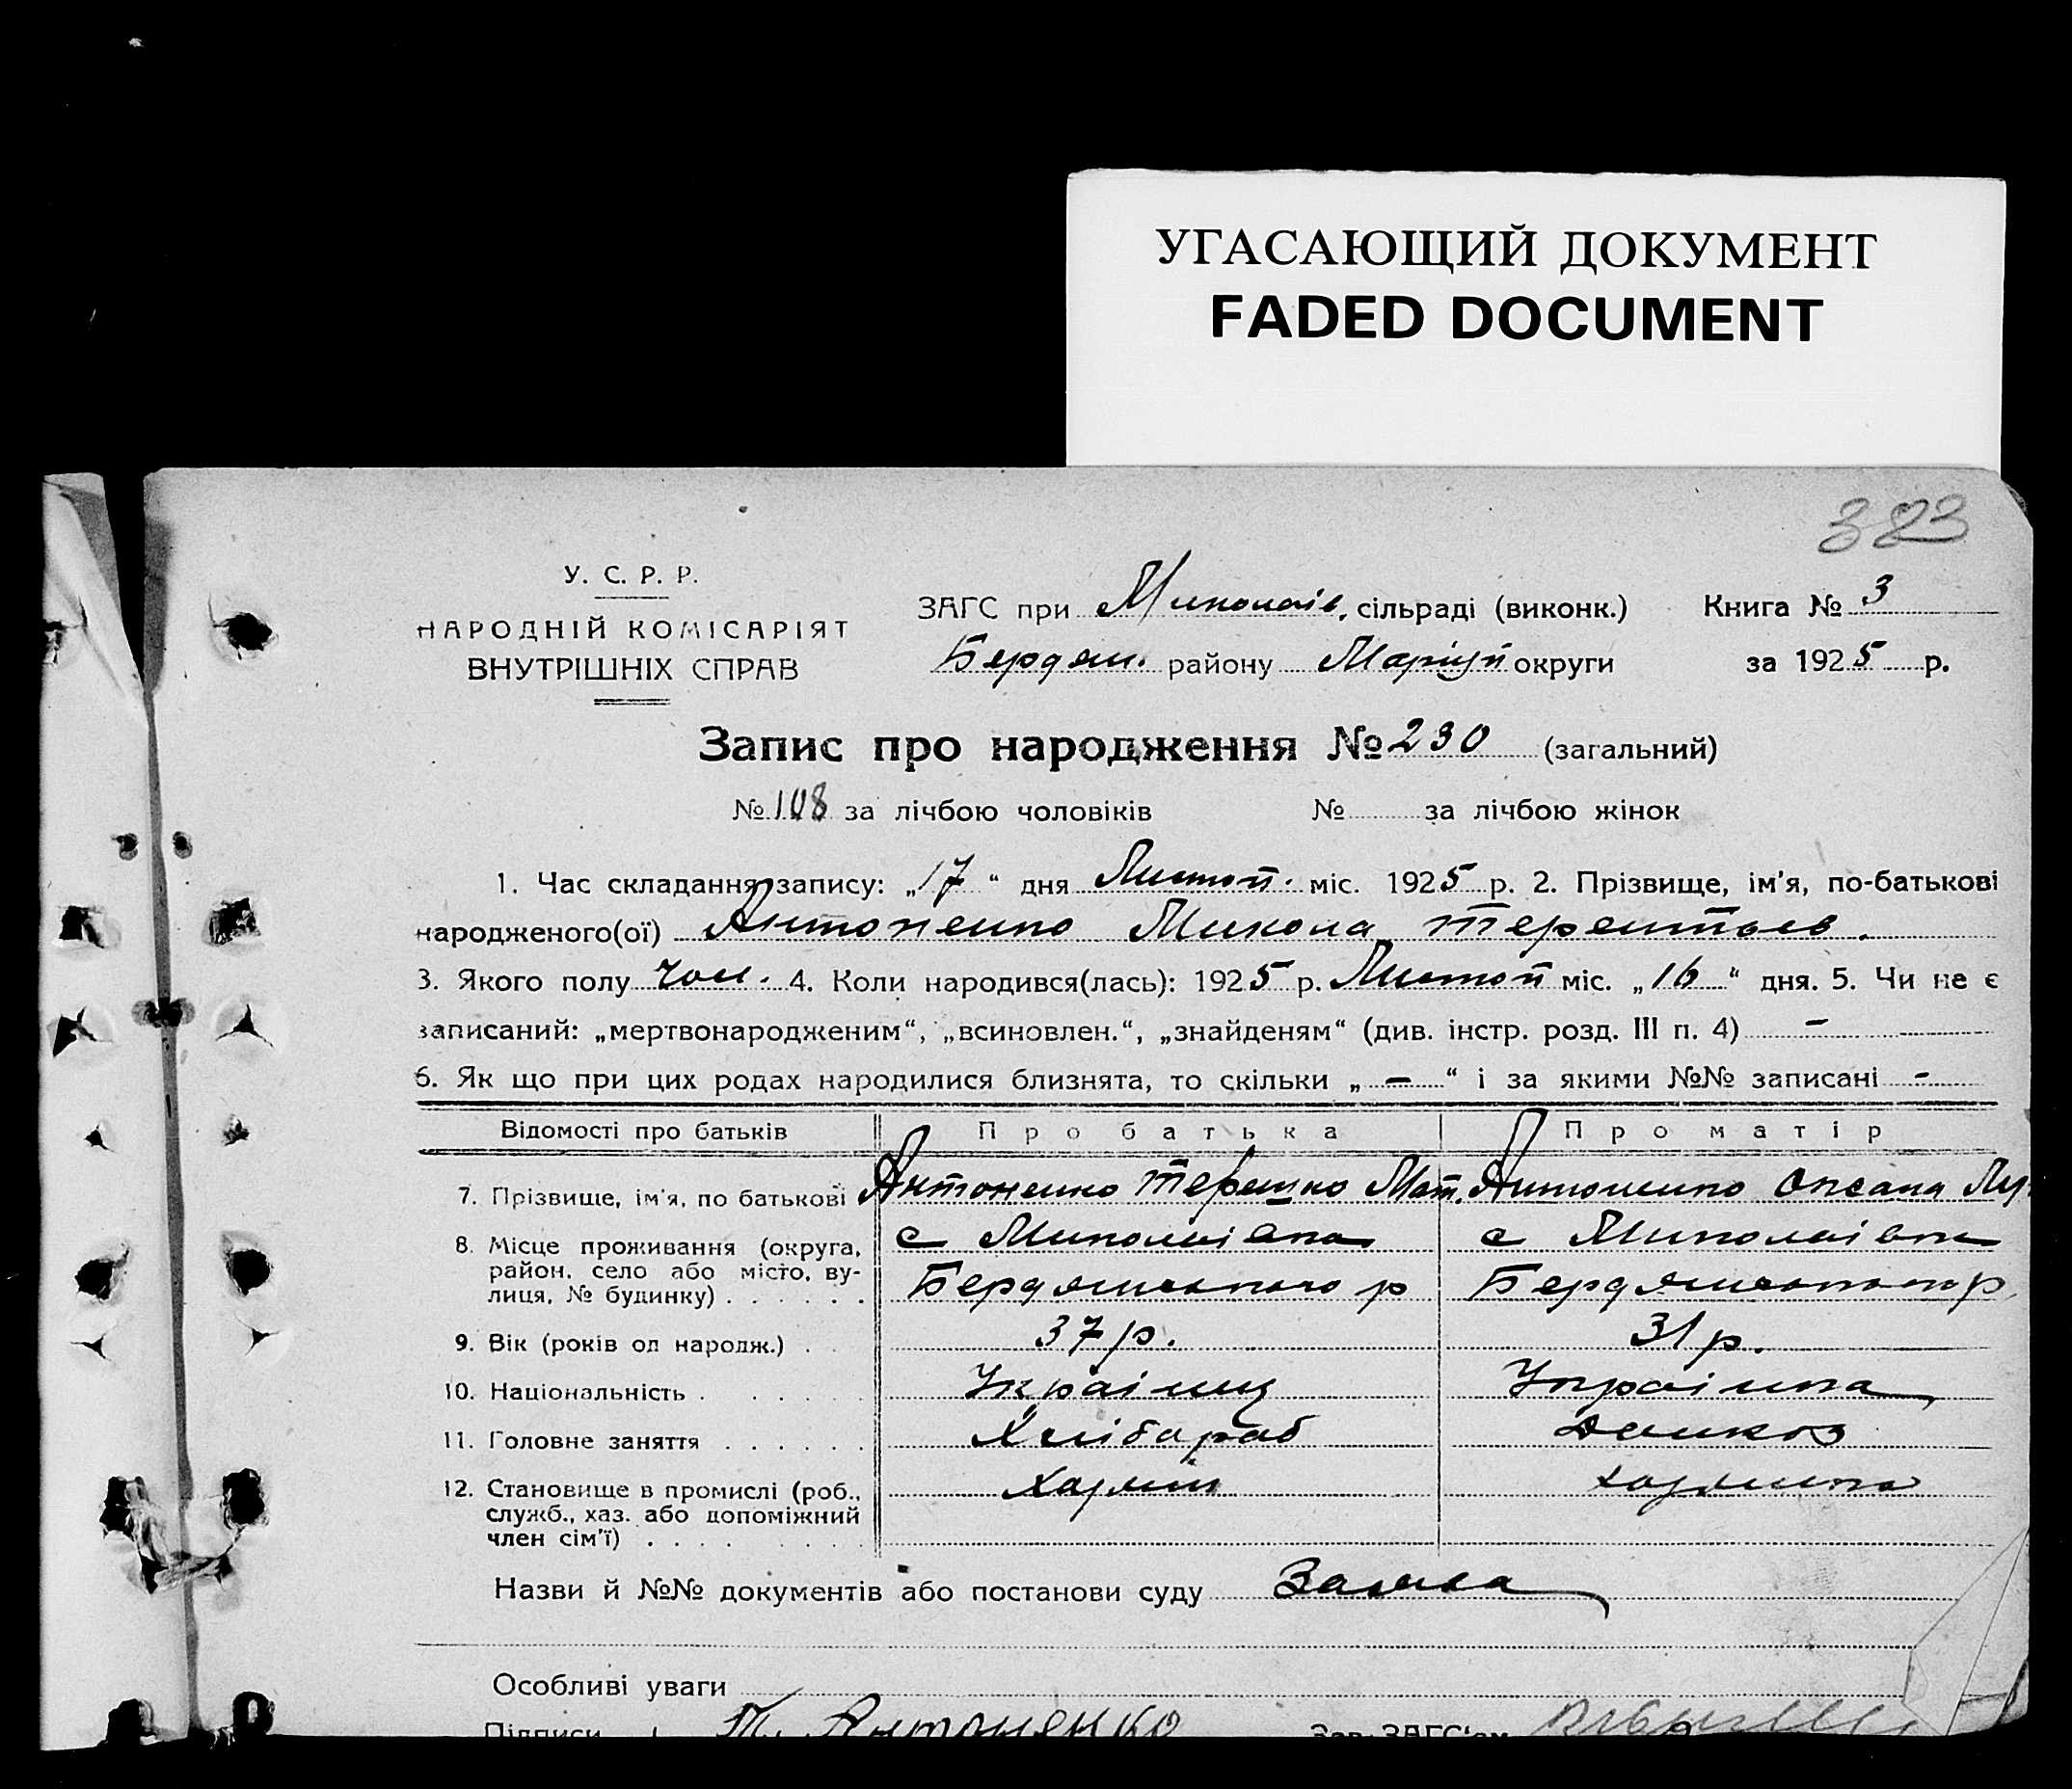 УГАСАЮЩИЙ ДОКУМЕНТ
FADED DOCUMENT
323
У. С. Р. Р.
НАРОДНІЙ КОМІСАРІЯТ
ВНУТРІШНІХ СПРАВ
ЗАГС при Миколаів. сільраді (виконк.) Книга № 3
Бердян. району Маріуп округи за 1925 р.
Запис про народження № 230 (загальний)
№ 108 за лічбою чоловіків № за лічбою жінок
1. Час складання запису: „17“ дня Листоп. міс. 1925 р. 2. Прізвище, ім'я, по-батькові
народженого(ої) Антоненко Микола Терентьев.
3. Якого полу чол. 4. Коли народився(лась): 1925 р. Листоп міс. „16“ дня. 5. Чи не є
записаний: „мертвонародженим“, „всиновлен.“, „знайденям“ (див. інстр. розд. III п. 4) –
6. Як що при цих родах народилися близнята, то скільки „ – “ і за якими №№ записані -
Відомості про батьків Про батька Про матір
7. Прізвище, ім'я, по батькові Антоненко Терешко Мат. Антоненко Оксана
8. Місце проживання (округа, с Миколаівка с Миколаівка
район, село або місто, ву-
лиця, № будинку) . . . . . . Бердянського р Бердянського р
9. Вік (років од народж.) . . 37 р. 31 р.
10. Національність . . . . . Украінць Украінка
11. Головне заняття . . . . . . Хлібораб
12. Становище в промислі (роб., Хазяін хазяінка
служб., хаз. або допоміжний
член сім'ї) . . . . . . . .
Назви й №№ документів або постанови суду Заява
Особливі уваги
Підписи Т. Антоненко Зав. ЗАГС'ом